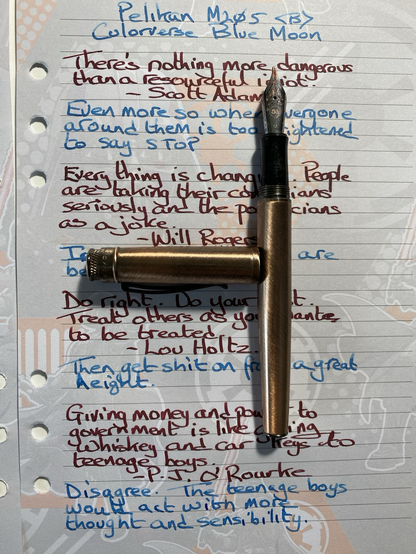 Pelikan M205 <B>
Colorverse Blue Moon
There's nothing more dangerous
than a resourceful idiot.
- Scott Adam
Even more so when everyone
around them is too frightened
to say STOP
Everything is chang . People
are taking their co ians
seriously and the po icians
as a joke.
-Will Rogers
are
be
Do right. Do your st.
Treat others as you wante
to be treated.
- Lou Holtz.
Then get shit on fr a great
height.
Giving money and po to
government is like giving
Whiskey and car keys to
teenage boys.
-P.J. O'Rourke
Disagree. The teenage boys
would act with more
thought and sensibility.